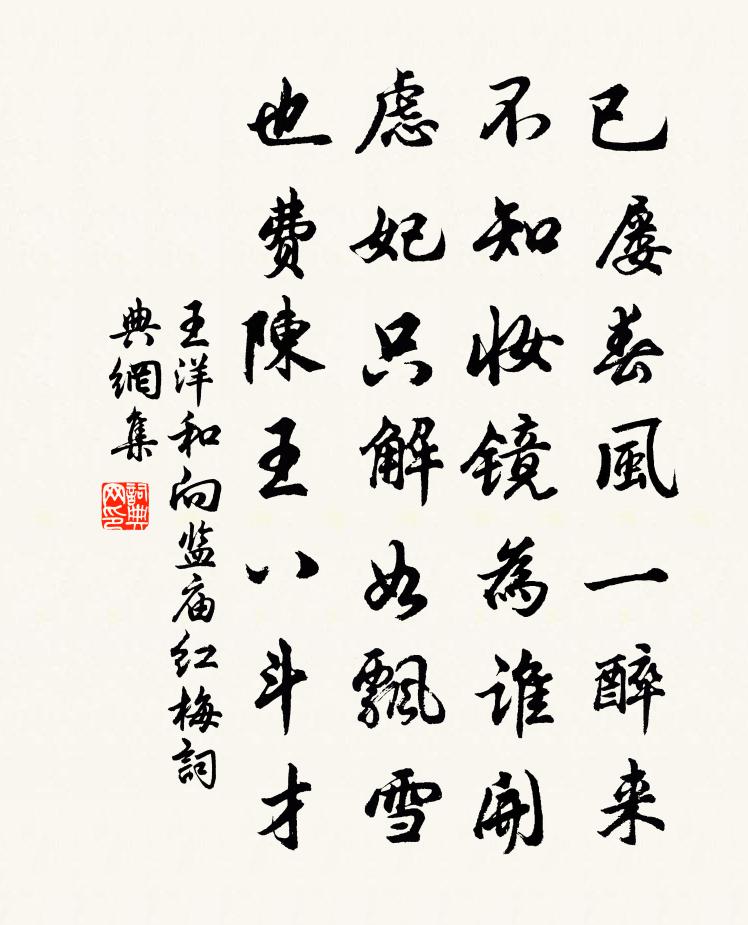 已屡春風一醉来
不知妝鏡為誰開
虙妃只解如飄雪
也費陳王八斗才
王洋和向监庙紅梅詞
典網集
詞典
网印